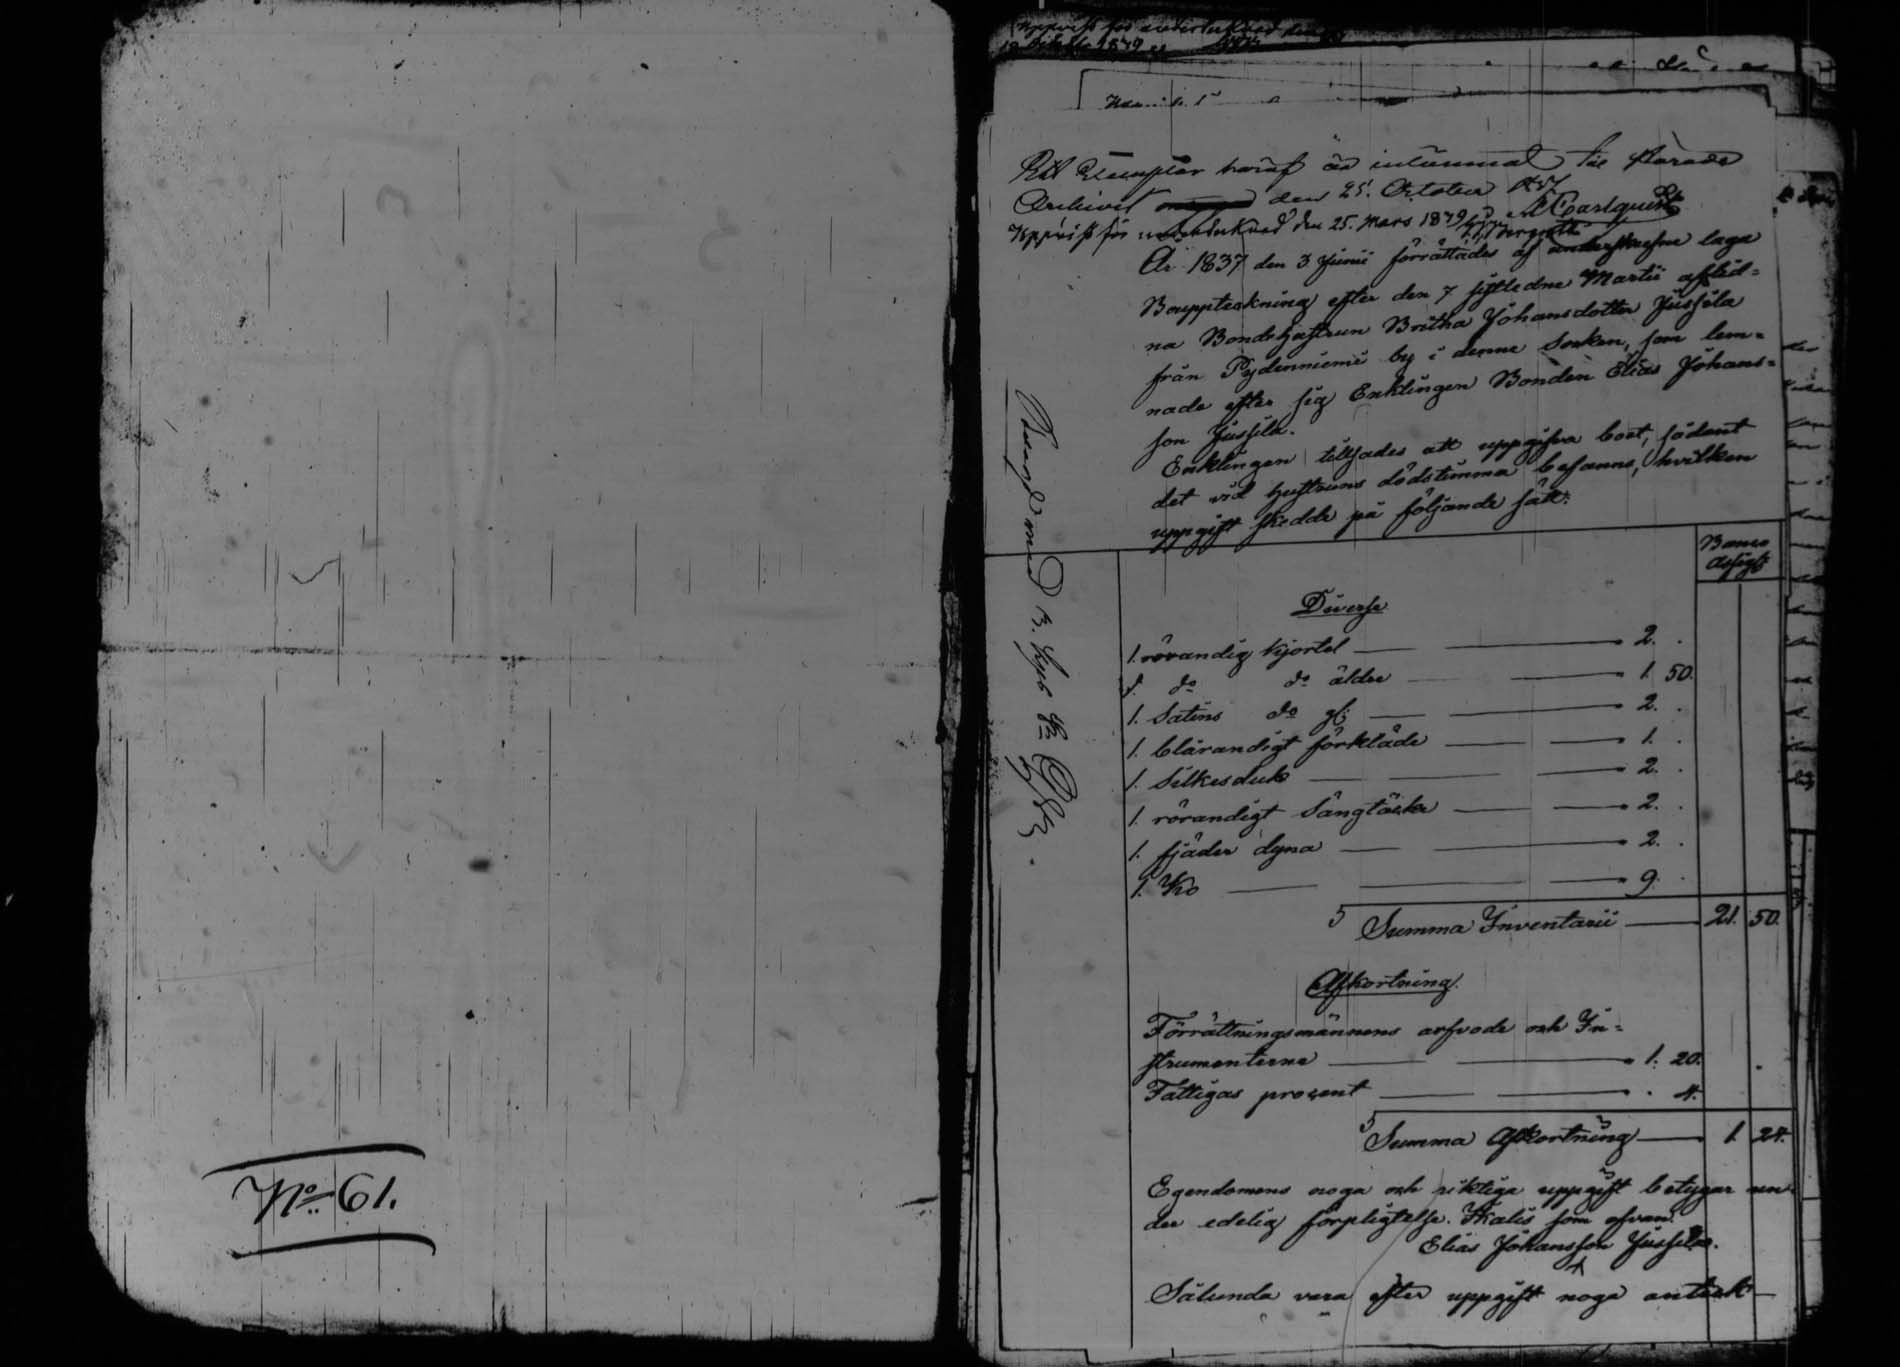 No 61.
Ett Exemplar häraf är inlämnad til Härads
Archivet den 25. October
Uppvist för undertecknad den 25. Mars 1879
År 1837 den 3 Junii förrättades af underskrefne laga
Bouppteckning efter den 7 sistledne Martii aflid=
na Bondehustrun Britha Johansdotter Jussila
från Pydenniemi by i denne Socken, som lem=
nade efter sig Enklingen Bonden Elias Johans=
son Jussila.
Enklingen tillsades att uppgifva boet, sådant
det vid hustruns dödstimma befanns, hvilken
uppgift skedde på följande sätt:
Banco
Assigt
Diverse
1. rörandig kjortel 2. .
1. do do äldre 1. 50.
1. Satins do gl: 2. .
1. blårandigt förkläde 1. .
1. Silkesduk 2. .
1. rörandigt Sängtäcke 2. .
1. fjäder dyna 2. .
1. Ko 9. .
Summa Inventarii 21. 50.
Afkortning.
Förrättningsmännens arfvode och In=
strumenterne 1. 20.
Fattigas procent . 4.
Summa Afkortning 1. 24.
Egendomens noga och riktiga uppgift betygar un
der edelig förpligtelse. Ikalis som ofvan.
Elias Johansson Jussila.
Sålunda vara efter uppgift noga anteck